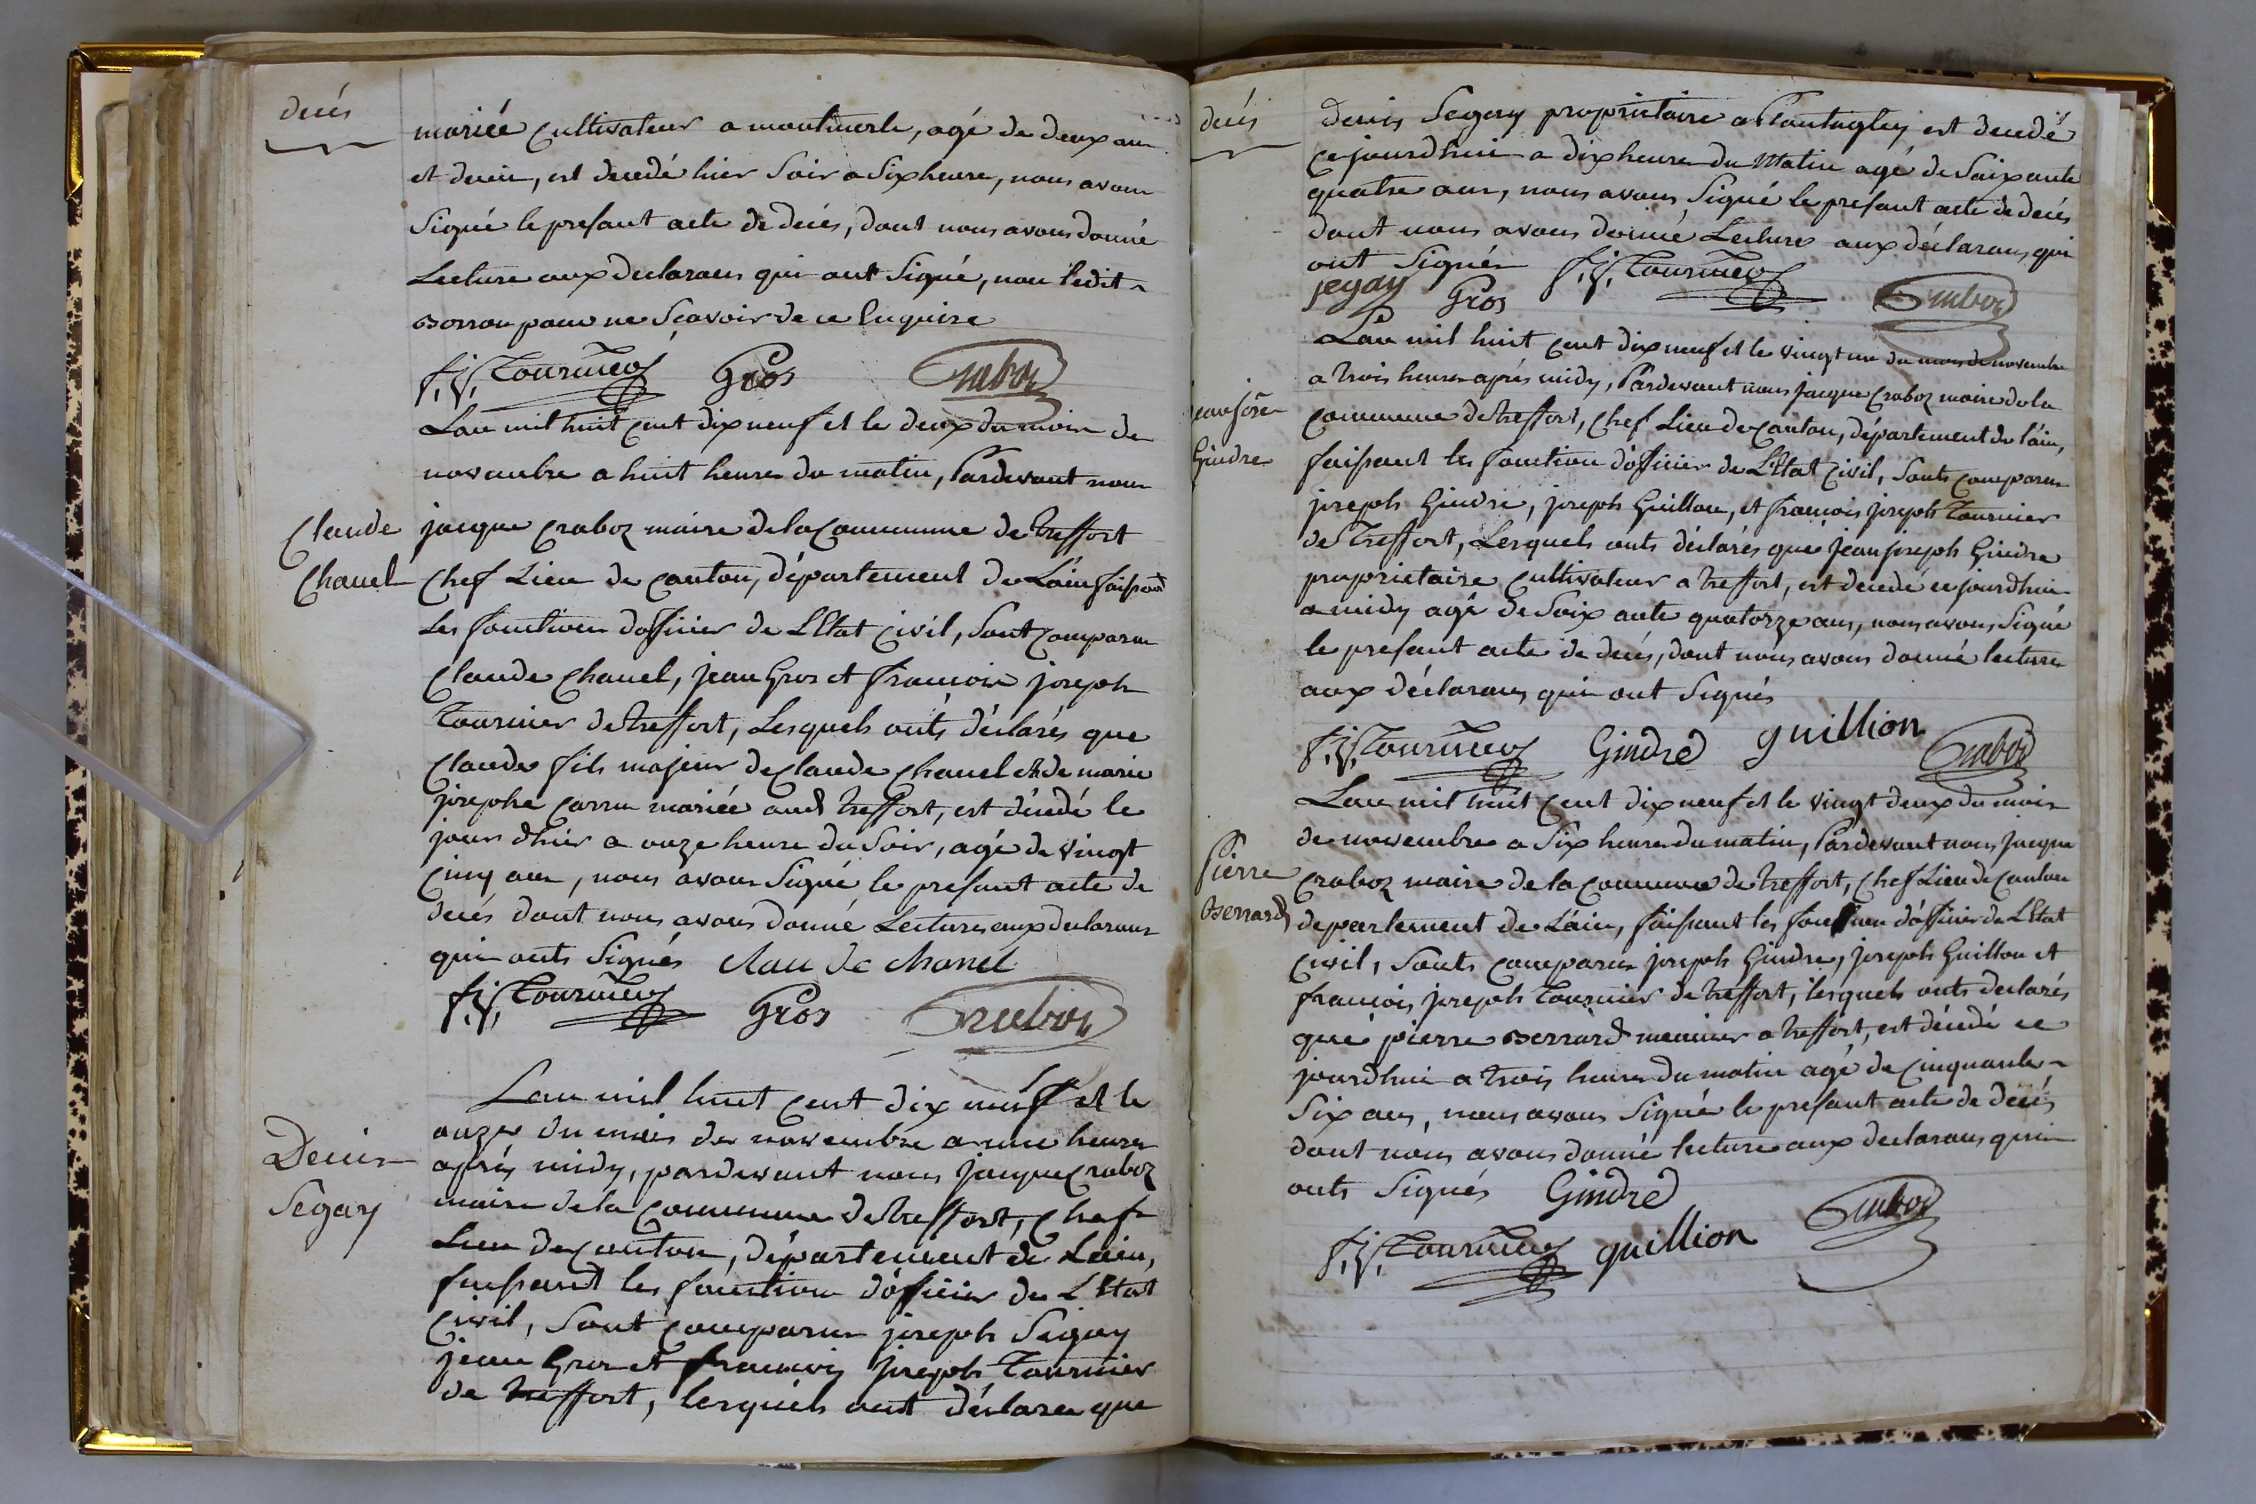 decés
mariée cultivateur a montmerle, agé de deux ans
et demi, est decedé hier Soir a Six heure, nous avons
Signé le presant acte de decés, dont nous avons donné
Lecture aux declarans qui ont Signé, non ledit
pour ne Scavoir de ce Enquise
f. j. Tournier Gros Craboz
Lan mil huit cent dix neuf et le deux du mois de
novembre a huit heures du matin, Pardevant nous
Claude
Chanel
jacque Craboz maire de la Commune de treffort
Chef Lieu de canton, département de Lain faisant
Les fonction dofficier de LEtat Civil, Sont Comparus
Claude Chanel, jean Gros et francois joseph
Tournier de treffort, Lesquels onts déclarés que
Claude fils majeur de Claude Chanel et de marie
josephe mariée aud treffort, est décédé le
jour dhier a onze heure du Soir, agé de vingt
Cinq ans, nous avons Signé le presant acte de
decés dont nous avons donné Lecture aux declarans
qui onts Signés clau de chanel
f. j. Tournier Gros Craboz
Lan mil huit cent dix neuf et le
Denis
Segay
onze du mois de novembre a une heure
aprés midy, pardevant nous jacque Craboz
maire de la Commune de treffort, Chef
Lieu de canton, département de Lain,
faisant les fonction dófficier de LEtat
Civil, Sont Comparus joseph Segay
jean Gros et francois joseph Tournier
de treffort, lesquels ont déclarés que
decés
Denis Segay proprietaire a Plantaglay est decedé
cejourdhui a dix heure du Matin agé de Soixante
quatre ans, nous avons Signé le presant acte de decés
dont nous avons donné Lecture aux déclarans, qui
ont Signés f. j. Tournier
segay Gros Craboz
Lan mil huit cent dix neuf et le vingt un du mois de novembre
a trois heures aprés midy, Pardevant nous jacque Craboz maire de la
jean josé
Gindre
Commune de treffort, Chef Lieu de Canton, département de láin,
faisant les fonction dófficier de LEtat Civil, Sonts Comparus
joseph Gindre, joseph Guillon, et francois joseph Tournier
de Treffort, Lesquels onts déclarés que jean joseph Gindre
proprietaire Cultivateur a treffort, est decedé cejourdhui
a midy agé de Soix ante quatorze ans, nous avons Signé
le presant acte de decés, dont nous avons donné lecture
aux déclarans qui ont Signés
f. j. Tournier Gindre guillion Craboz
Lan mil huit Cent dix neuf et le vingt deux du mois
de novembre a Six heures du matin, Pardevant nous jacque
Pierre
Berrard
Craboz maire de la Commune de treffort, Chef Lieu de Canton
departement de Láin, faisant les fonction dófficier de LEtat
Civil, Sonts Comparus joseph Gindre, joseph Guillon et
francois joseph Tournier de treffort, lesquels onts declarés
que pierre Berrard meunier a treffort, est décédé ce
jourdhui a trois heures du matin agé de Cinquante
Six ans, nous avons Signé le presant acte de decés
dont nous avons donné lecture aux declarans qui
onts Signés Gindre
f. j. Tournier guillion Craboz